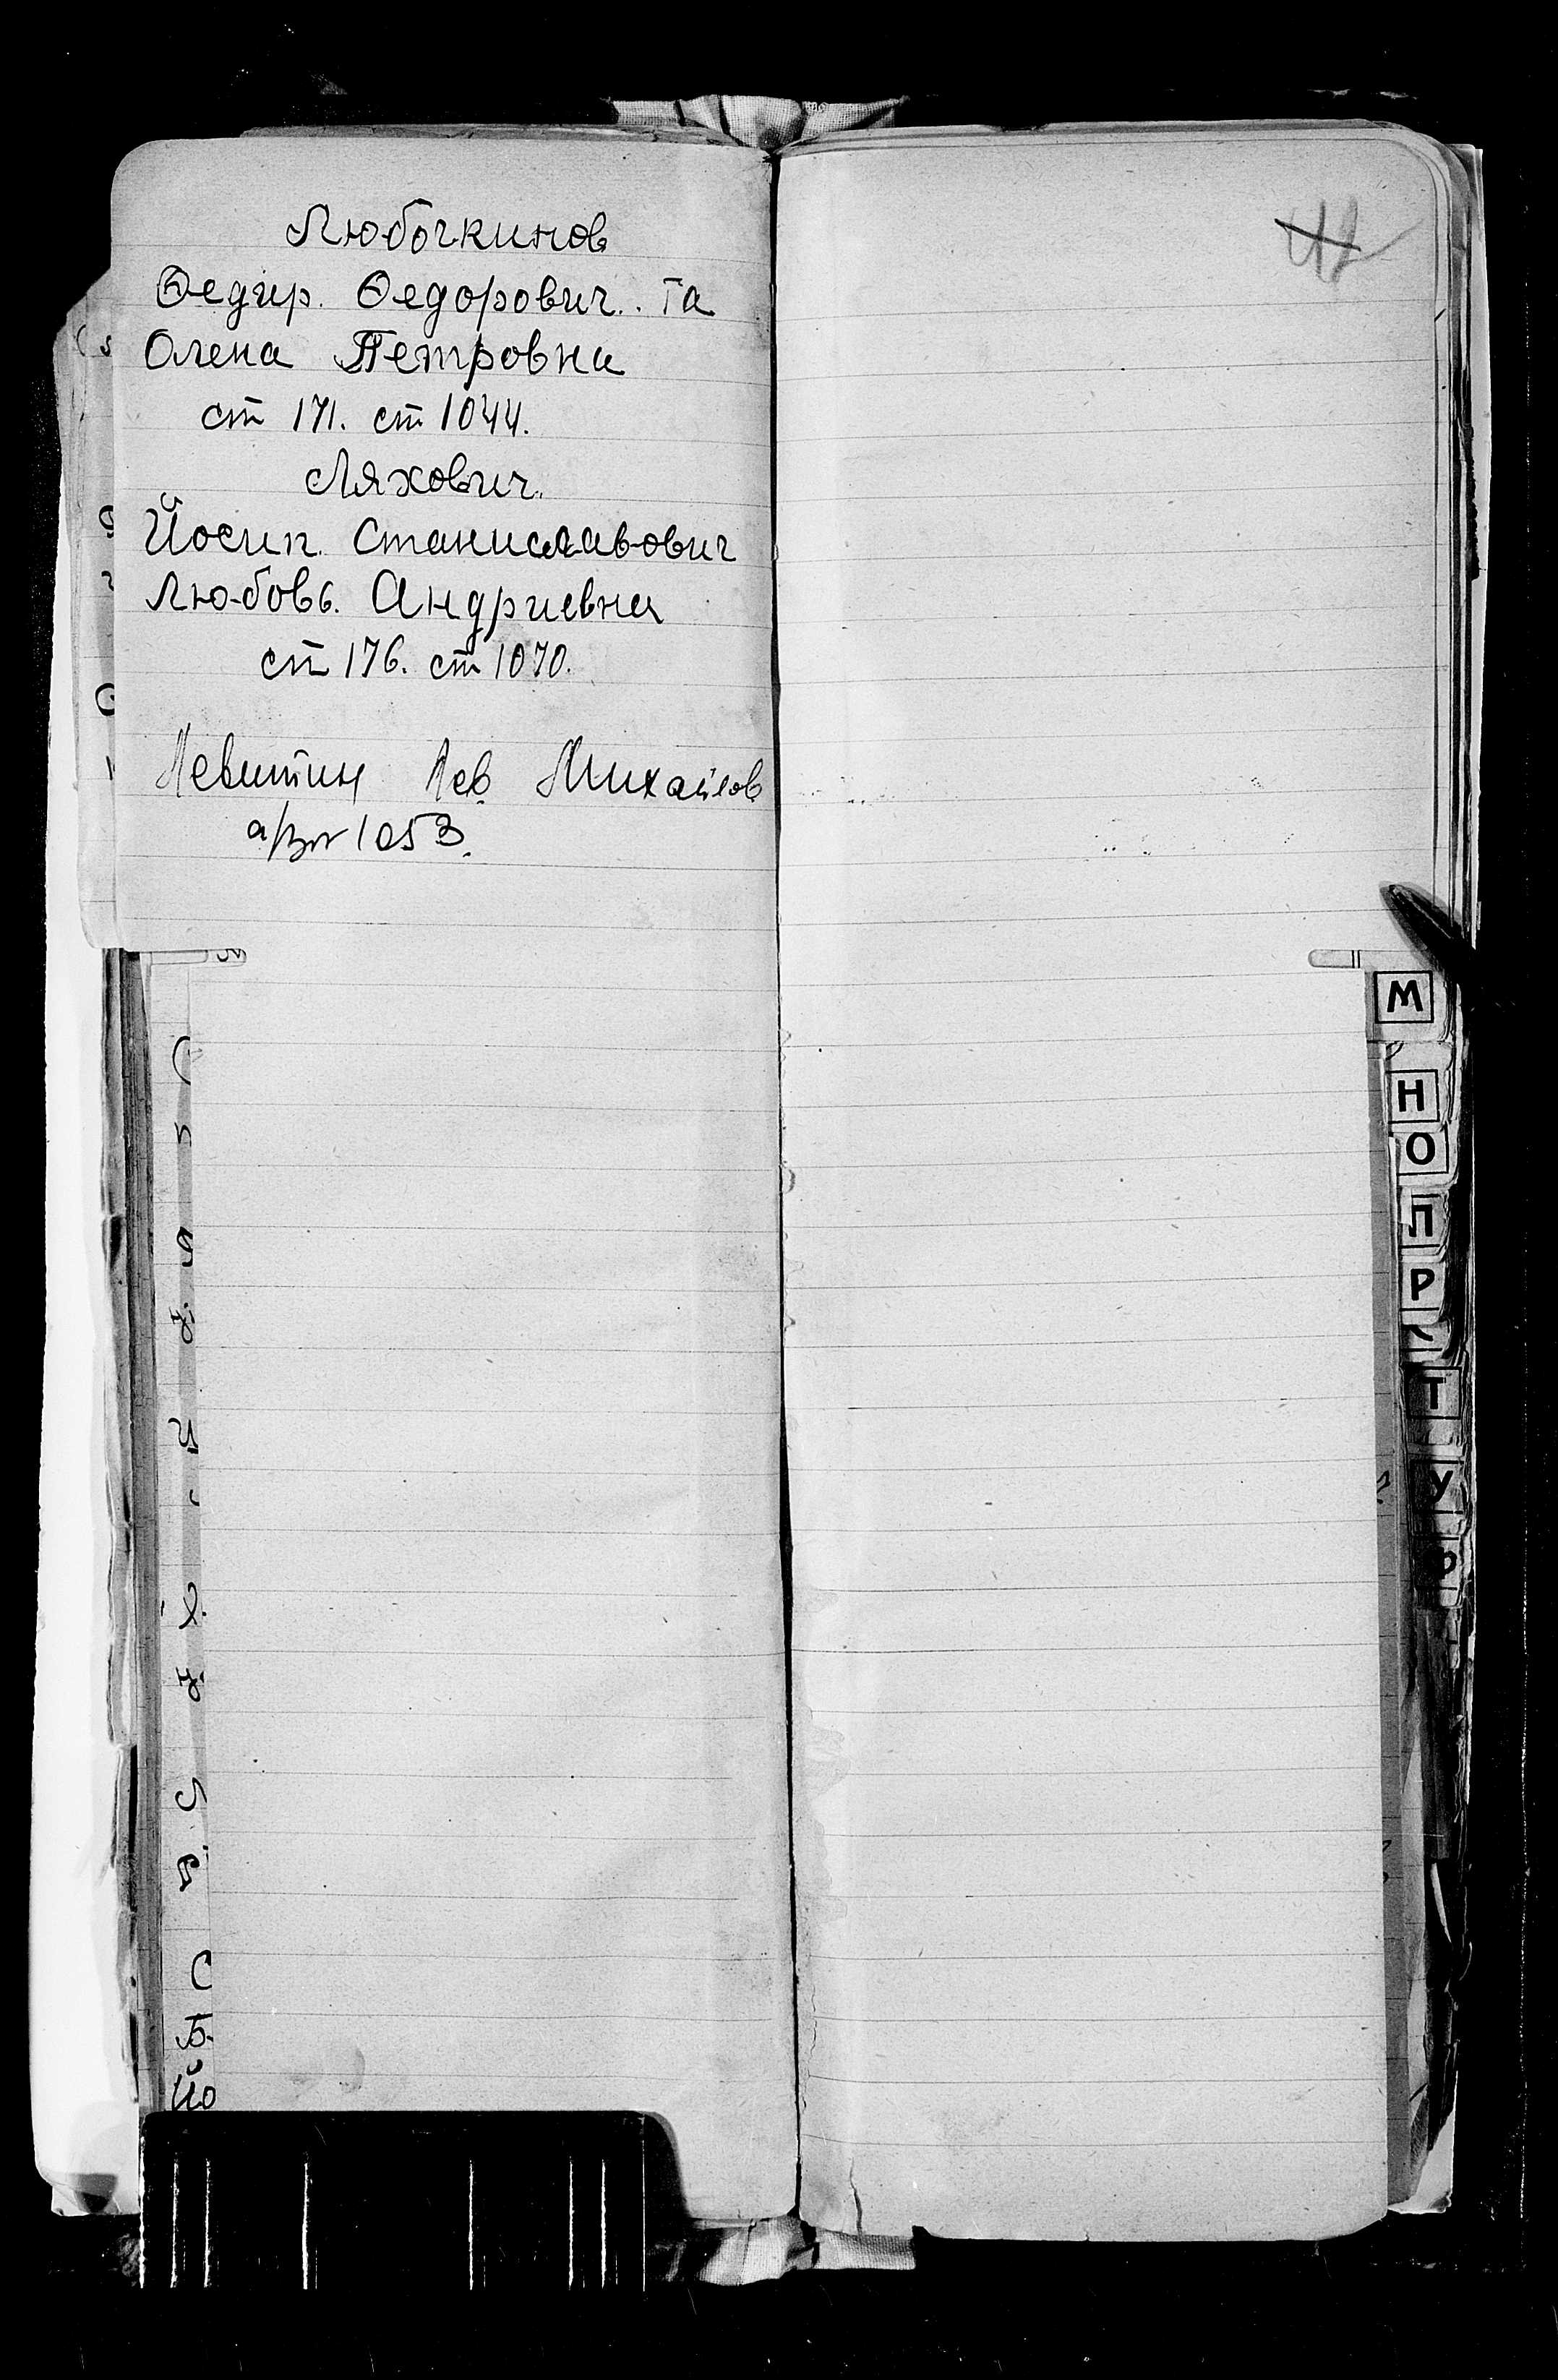 Любочкинов
Федир. Федорович. та
Олена Петровна
ст 171. ст 1044.
Ляхович.
Йосип. Станиславович
Любовь. Андриевна
ст 176. ст 1070.
Левитин Лев Михайлов
1053.
42
М
Н
О
П
Р
Т
У
Ф